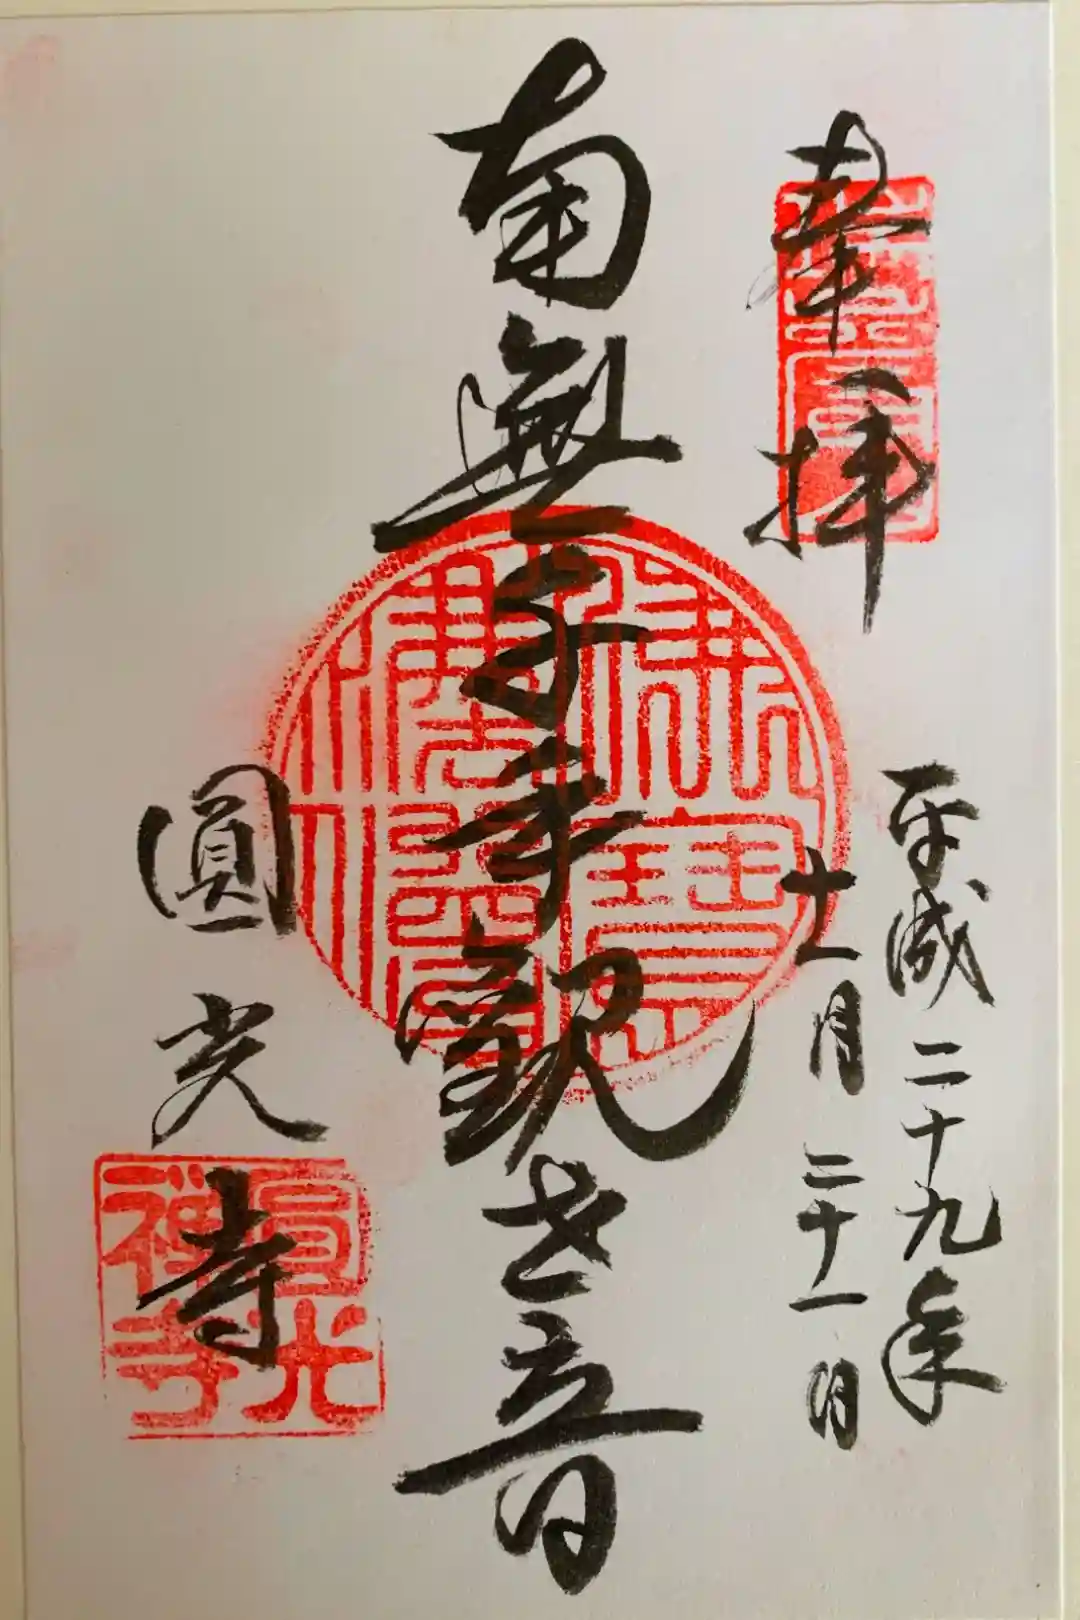 奉拝
平成二十九年
十一月二十一日
南無千手觀世音
圓光寺
圓光禅寺